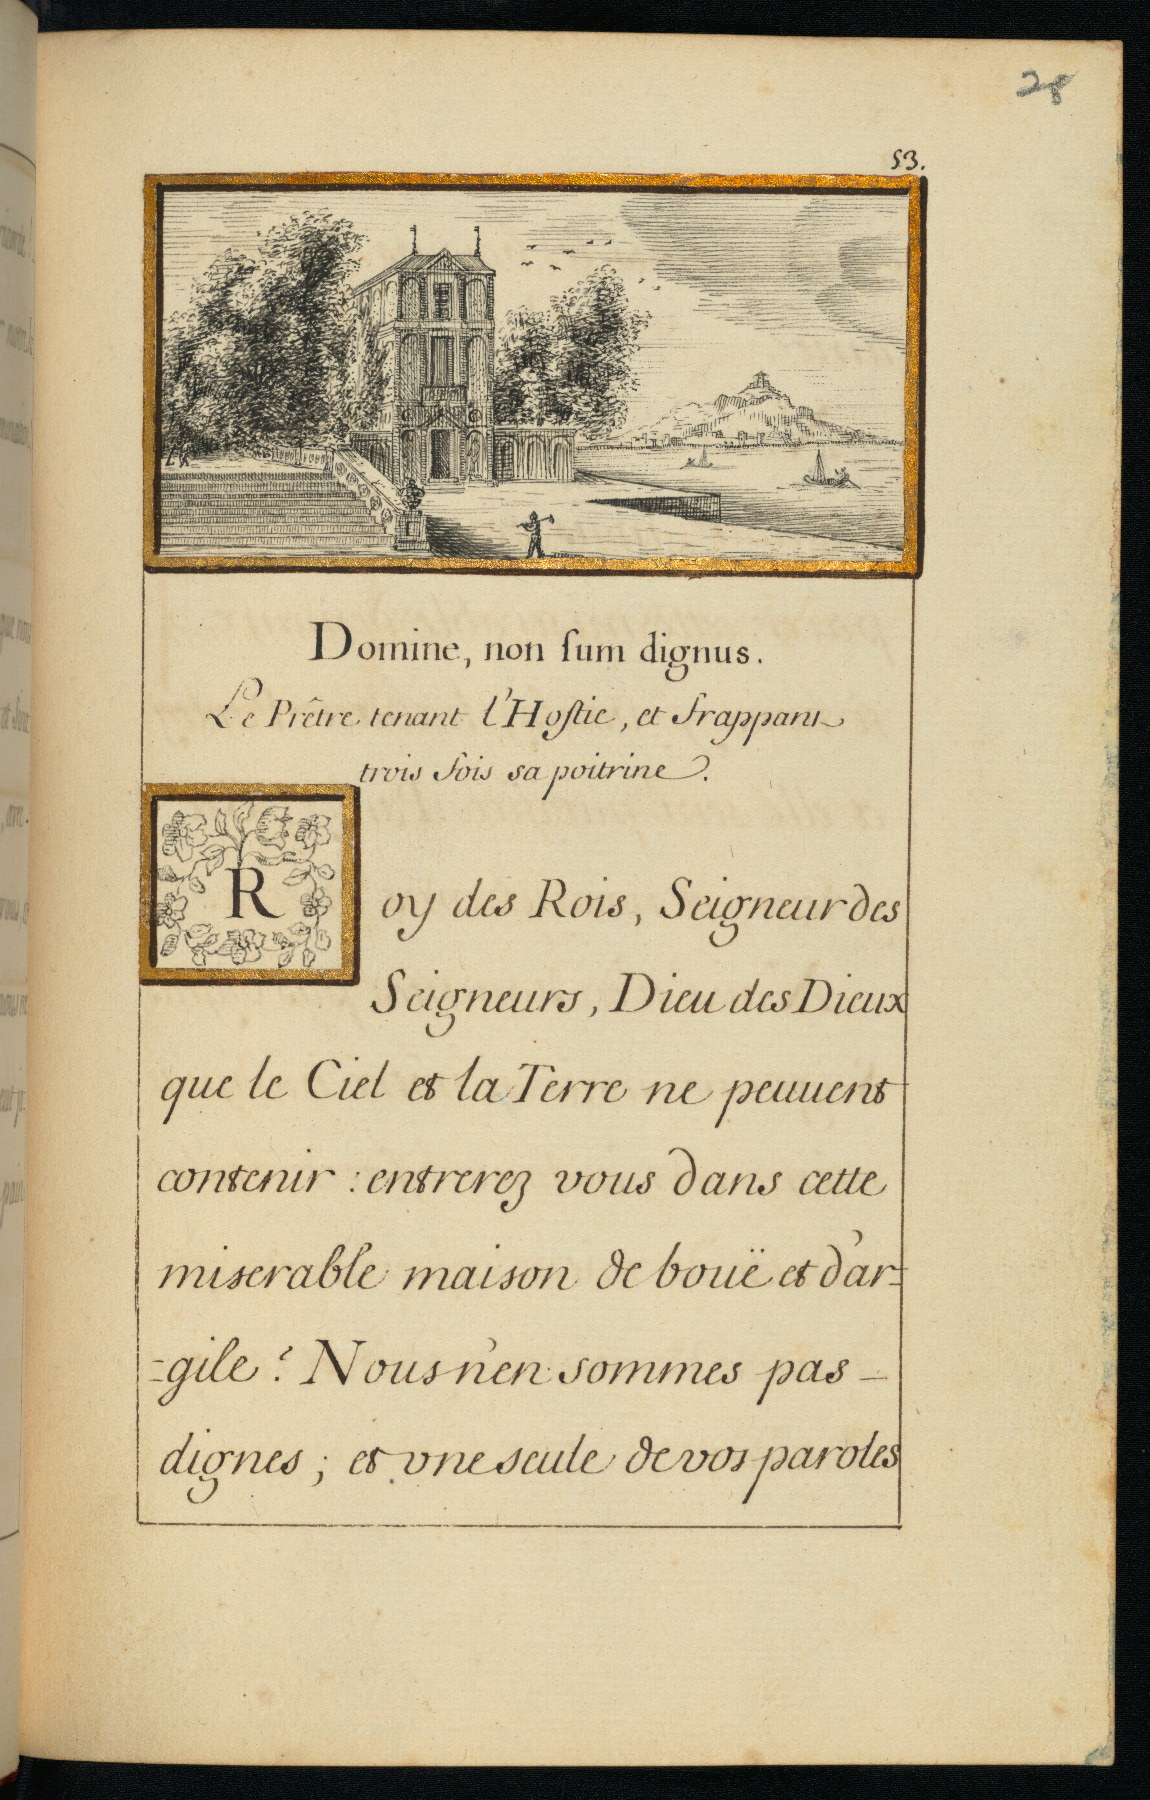 28
53.
Domine, non ſum dignus.
Le Prêtre tenant l'Hoſtie, et frappant
trois fois sa poitrine.
Roy des Rois, Seigneur des
Seigneurs, Dieu des Dieux
que le Ciel et la Terre ne peuuent
contenir : entrerez vous dans cette
miserable maison de bouë et d'ar=
=gile ? Nous n'en sommes pas _
dignes ; et vne seule de vos paroles